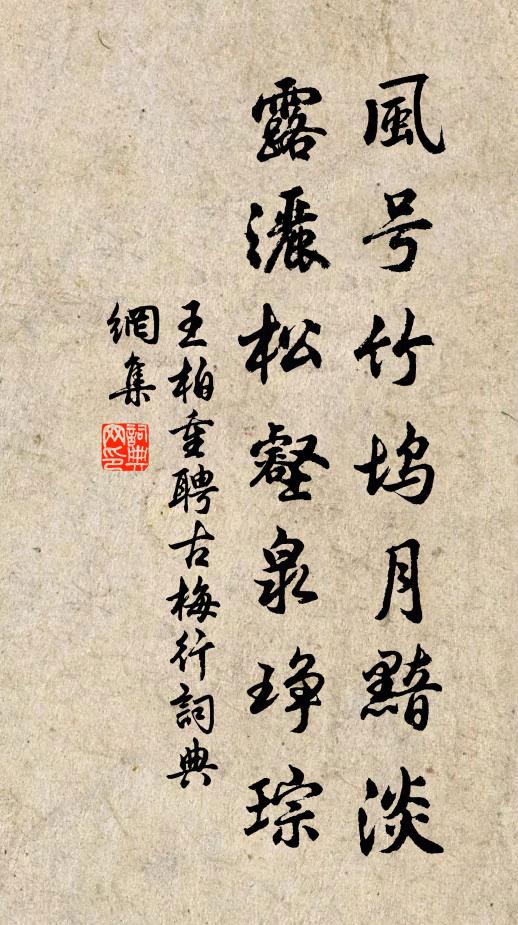 風号竹塢月黯淡
露灑松壑泉琤琮
王柏重聘古梅行詞典
網集
詞典
网印